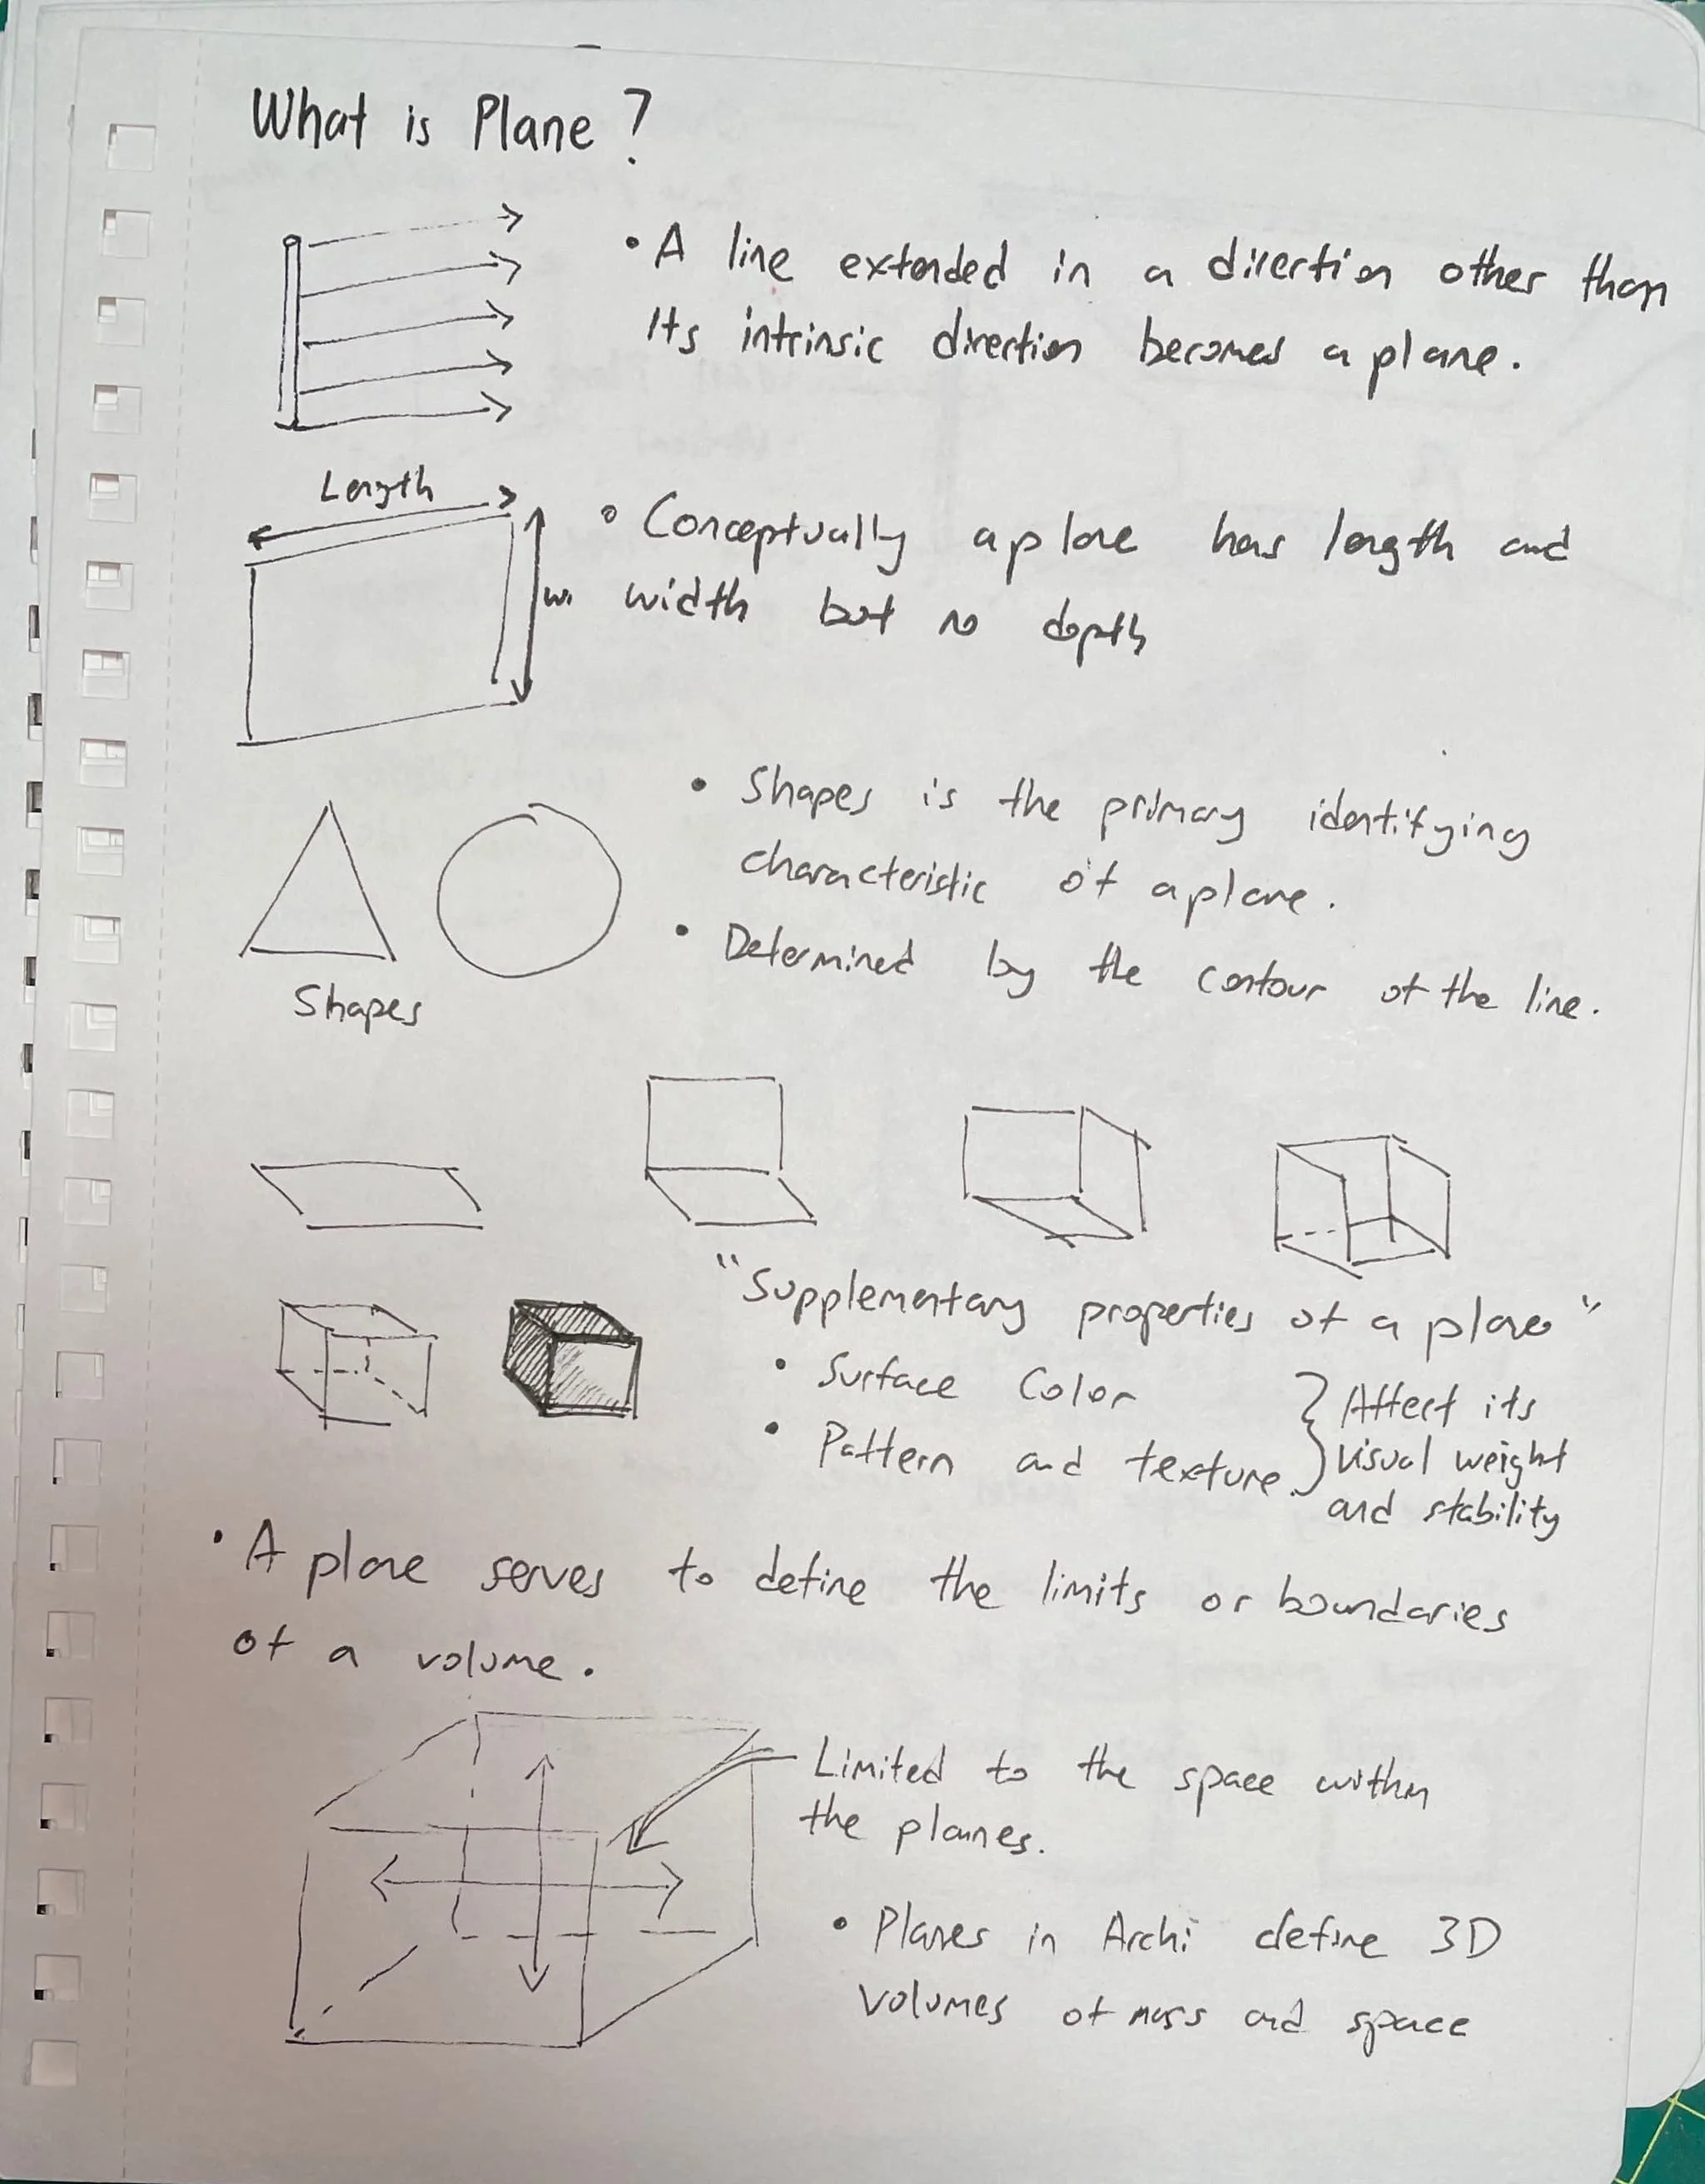 What is Plane?
• A line extended in a direction other than
Its intrinsic direction becomes a plane.
Length
• Conceptually a plane has length and
wi
width but no depth
• Shapes is the primary identifying
characteristic of a plane.
• Determined by the contour of the line.
Shapes
"Supplementary properties of a plane"
• Surface Color
• Pattern and texture.
} Affect its
visual weight
and stability
• A plane serves to define the limits or boundaries
of a volume.
Limited to the space within
the planes.
• Planes in Archi define 3D
volumes of mass and space